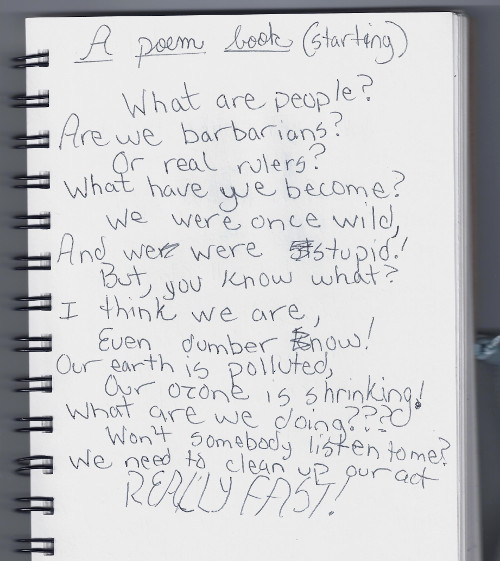 A poem book (starting)
What are people?
Are we barbarians?
Or real rulers?
What have we become?
We were once wild,
And we were stupid!
But, you know what?
I think we are,
Even dumber now!
Our earth is polluted,
Our ozone is shrinking!
What are we doing????
Won't somebody listen to me?
We need to clean up our act
REALLY FAST!